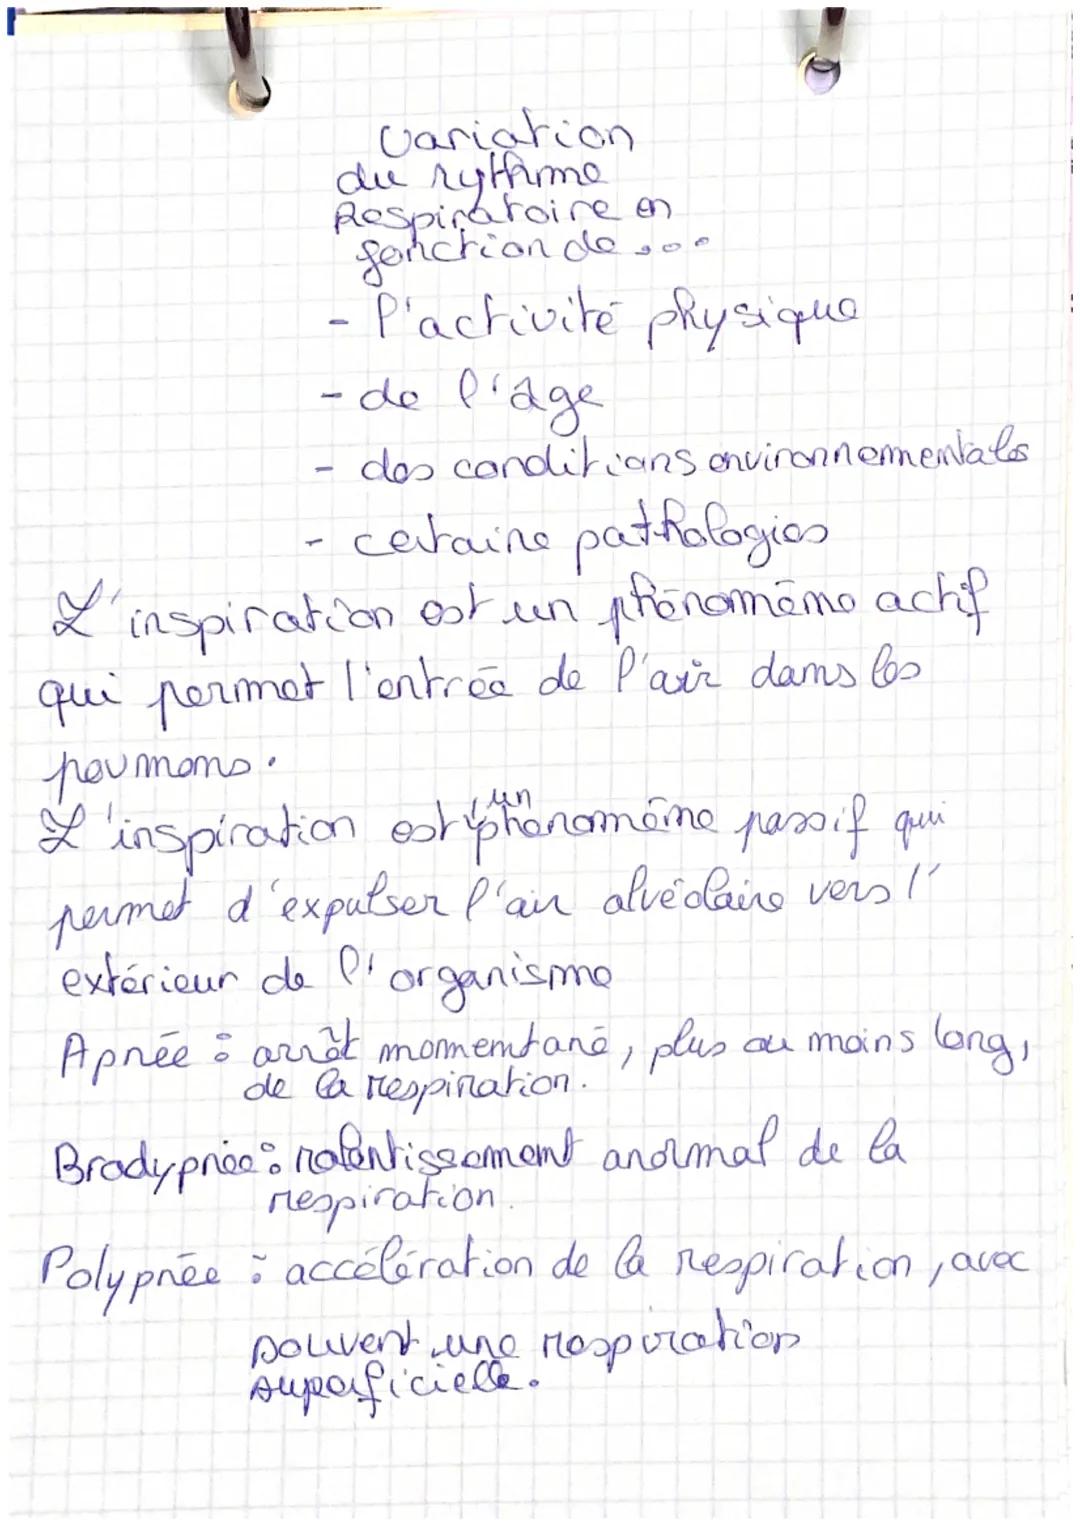 Variation
du rythme
Respiratoire en
fonction de ...
- l'activité physique
- de l'âge
- des conditions environnementales
- certaine pathologies
L'inspiration est un phénomène actif
qui permet l'entrée de l'air dans les
poumons.
L'inspiration est un phénomène passif qui
permet d'expulser l'air alvéolaire vers l'
extérieur de l'organisme
Apnée : arrêt momentané, plus ou moins long,
de la respiration.
Bradypnée : ralentissement anormal de la
respiration.
Polypnée : accélération de la respiration, avec
souvent une respiration
superficielle.